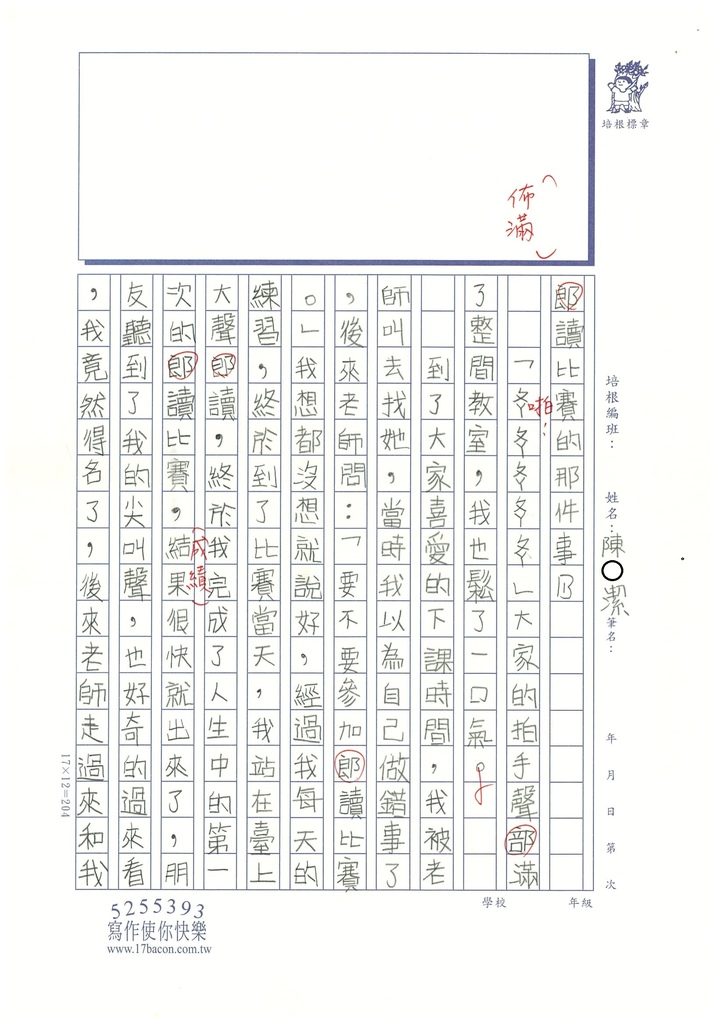 培根標章
培根編班：
姓名：陳○潔
筆名：
年 月 日 第 次
佈滿
郎讀比賽的那件事乃
「ㄆㄚㄆㄚㄆㄚㄆㄚㄆㄚ」大家的拍手聲部滿
啪！
了整間教室，我也鬆了一口氣。
到了大家喜愛的下課時間，我被老
師叫去找她，當時我以為自己做錯事了
，後來老師問：「要不要參加郎讀比賽
。」我想都沒想就說好，經過我每天的
練習，終於到了比賽當天，我站在臺上
大聲郎讀，終於我完成了人生中的第一
次的郎讀比賽，結果很快就出來了，朋
（成績）
友聽到了我的尖叫聲，也好奇的過來看
，我竟然得名了，後來老師走過來和我
17×12=204
學校
年級
5255393
寫作使你快樂
www.17bacon.com.tw